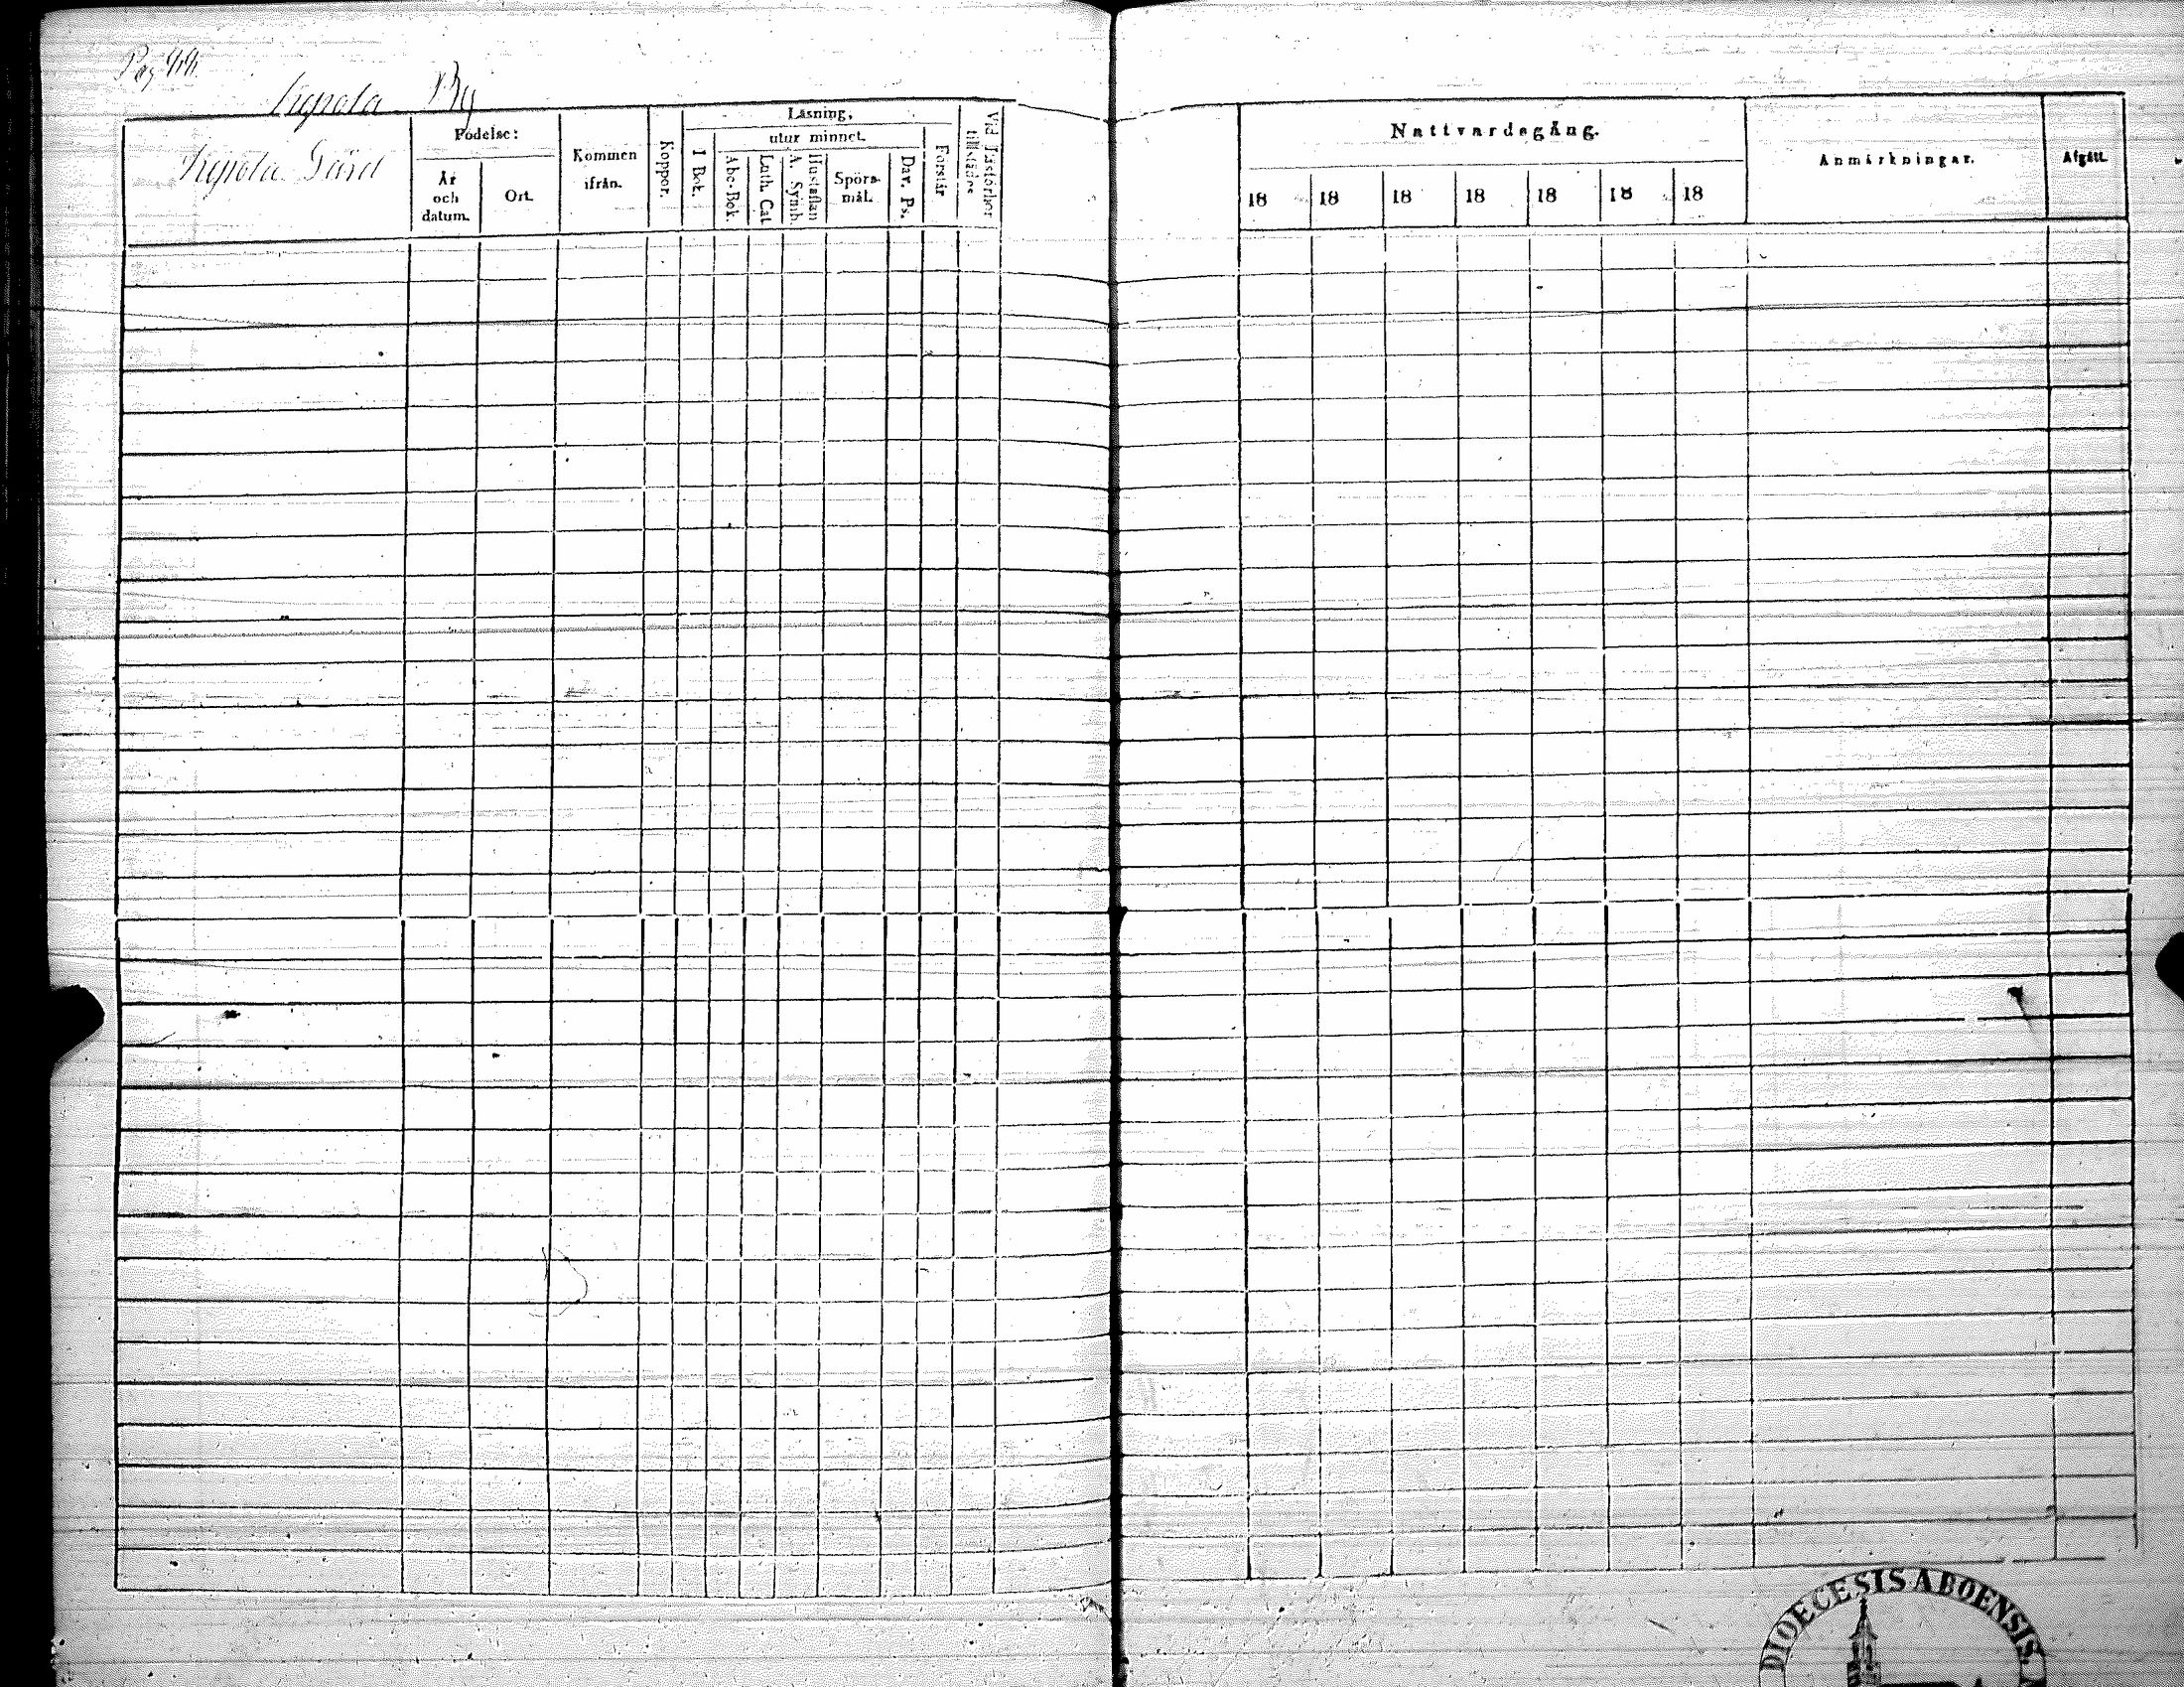 Pag 44.
By
Gård
Födelse:
År och datum.
Ort.
Kommen ifrån.
Koppor.
Läsning,
I Bok.
utur minnet.
Abc-Bok.
Luth. Cat
A. Symb. Hustaflan
Spörsmål.
Dav. Ps.
Förstår
Vid Läsförhör tillstädes
Nattvardsgång.
18 18 18 18 18 18 18
Anmärkningar.
Afgått.
DIOECESIS ABOENSIS